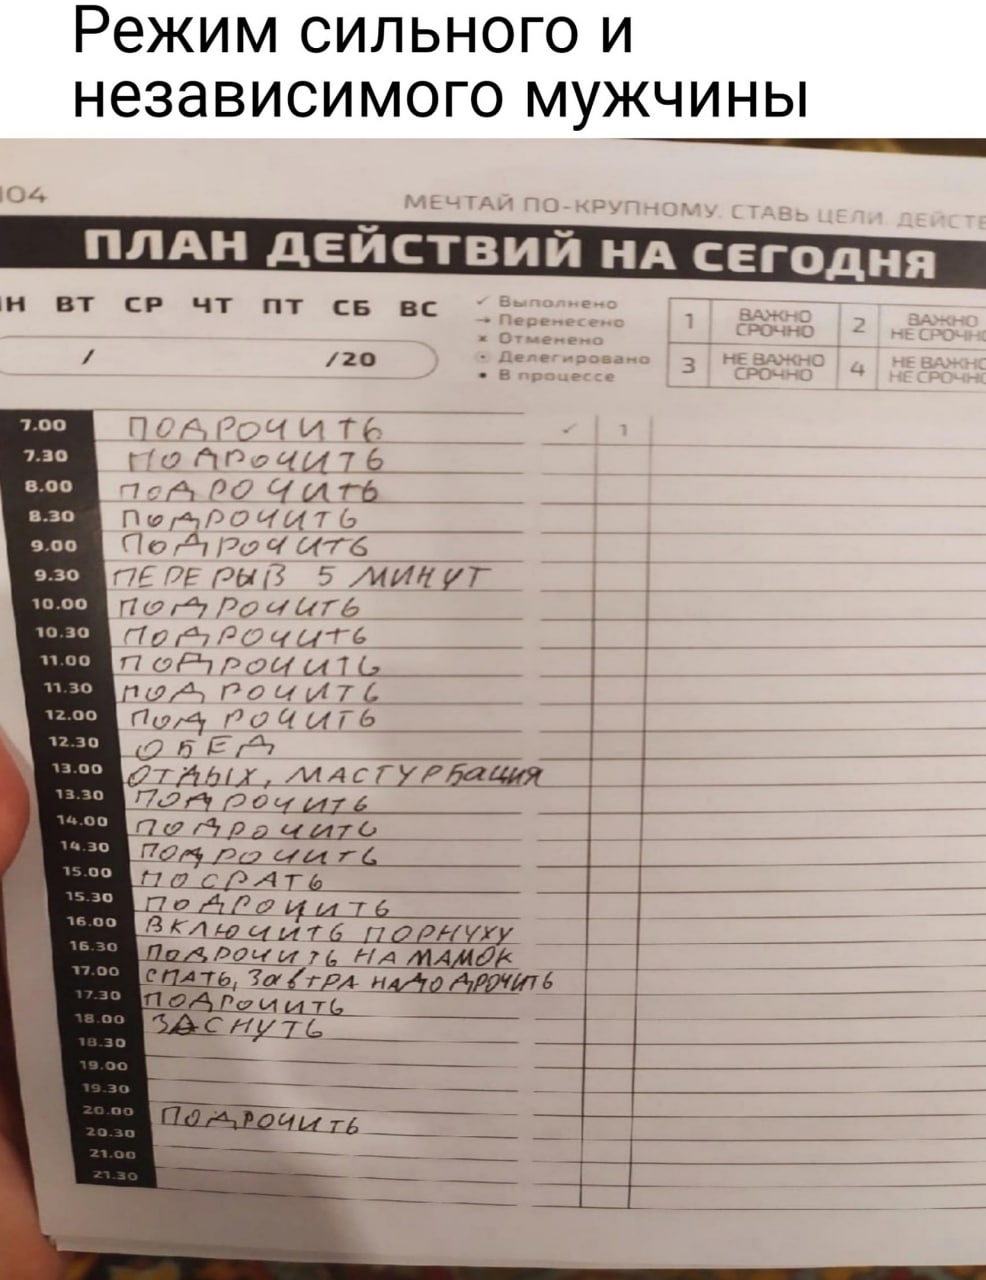 Режим сильного и
независимого мужчины
104
МЕЧТАЙ ПО-КРУПНОМУ. СТАВЬ ЦЕЛИ. ДЕЙСТВ
ПЛАН ДЕЙСТВИЙ НА СЕГОДНЯ
Н ВТ СР ЧТ ПТ СБ ВС
/ /20
✓ Выполнено
→ Перенесено
× Отменено
Делегировано
• В процессе
1 ВАЖНО СРОЧНО 2 ВАЖНО НЕ СРОЧНО
3 НЕ ВАЖНО СРОЧНО 4 НЕ ВАЖНО НЕ СРОЧНО
7.00 ПОДРОЧИТЬ ✓ 1
7.30 ПОДРОЧИТЬ
8.00 ПОДРОЧИТЬ
8.30 ПОДРОЧИТЬ
9.00 ПОДРОЧИТЬ
9.30 ПЕРЕРЫВ 5 МИНУТ
10.00 ПОДРОЧИТЬ
10.30 ПОДРОЧИТЬ
11.00 ПОДРОЧИТЬ
11.30 ПОДРОЧИТЬ
12.00 ПОДРОЧИТЬ
12.30 ОБЕД
13.00 ОТДЫХ, МАСТУРБация
13.30 ПОДРОЧИТЬ
14.00 ПОДРОЧИТЬ
14.30 ПОДРОЧИТЬ
15.00 ПОСРАТЬ
15.30 ПОДРОЧИТЬ
16.00 ВКЛЮЧИТЬ ПОРНУХУ
16.30 ПОДРОЧИТЬ НА МАМОК
17.00 СПАТЬ, ЗАВТРА НАДО ДРОЧИТЬ
17.30 ПОДРОЧИТЬ
18.00 ЗАСНУТЬ
18.30
19.00
19.30
20.00 ПОДРОЧИТЬ
20.30
21.00
21.30